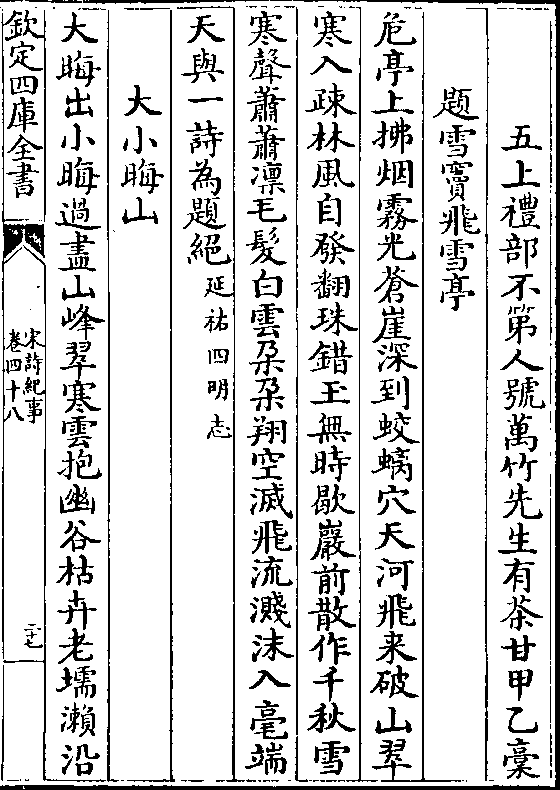 五上禮部不第人號萬竹先生有荼甘甲乙稾
題雪竇飛雪亭
危亭上拂烟霧光蒼崖深到蛟螭穴天河飛来破山翠
寒入疎林風自發翻珠錯玉無時歇巖前散作千秋雪
寒聲蕭蕭凛毛髮白雲朶朶翔空滅飛流濺沫入毫端
天與一詩為題絕延祐四明志
大小晦山
大晦出小晦過盡山峰翠寒雲抱幽谷枯卉老壖瀨沿
欽定四庫全書
宋詩紀事
卷四十八
二十七